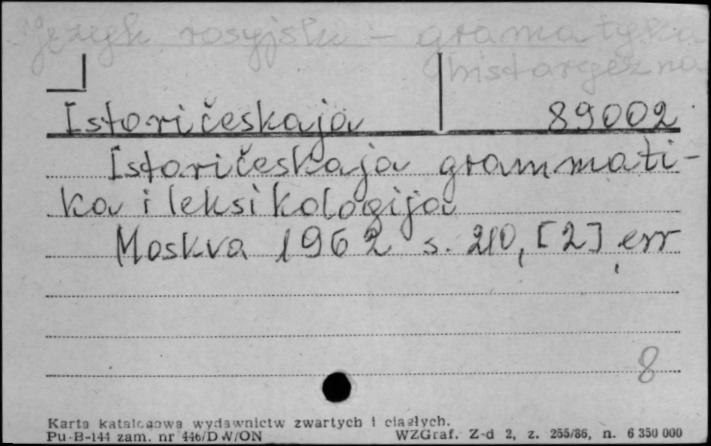 Język rosyjski - gramatyka
historyczna
Istoričeskaja 89002
Istoričeskaja grammati-
ka i leksikologija
Moskva 1962 s. 210, [2] err
8
Karta katalogowa wydawnictw zwartych i ciągłych.
Pu-B-144 zam. nr 446/DW/ON WZGraf. Z-d 2, z. 255/86, n. 6 350 000